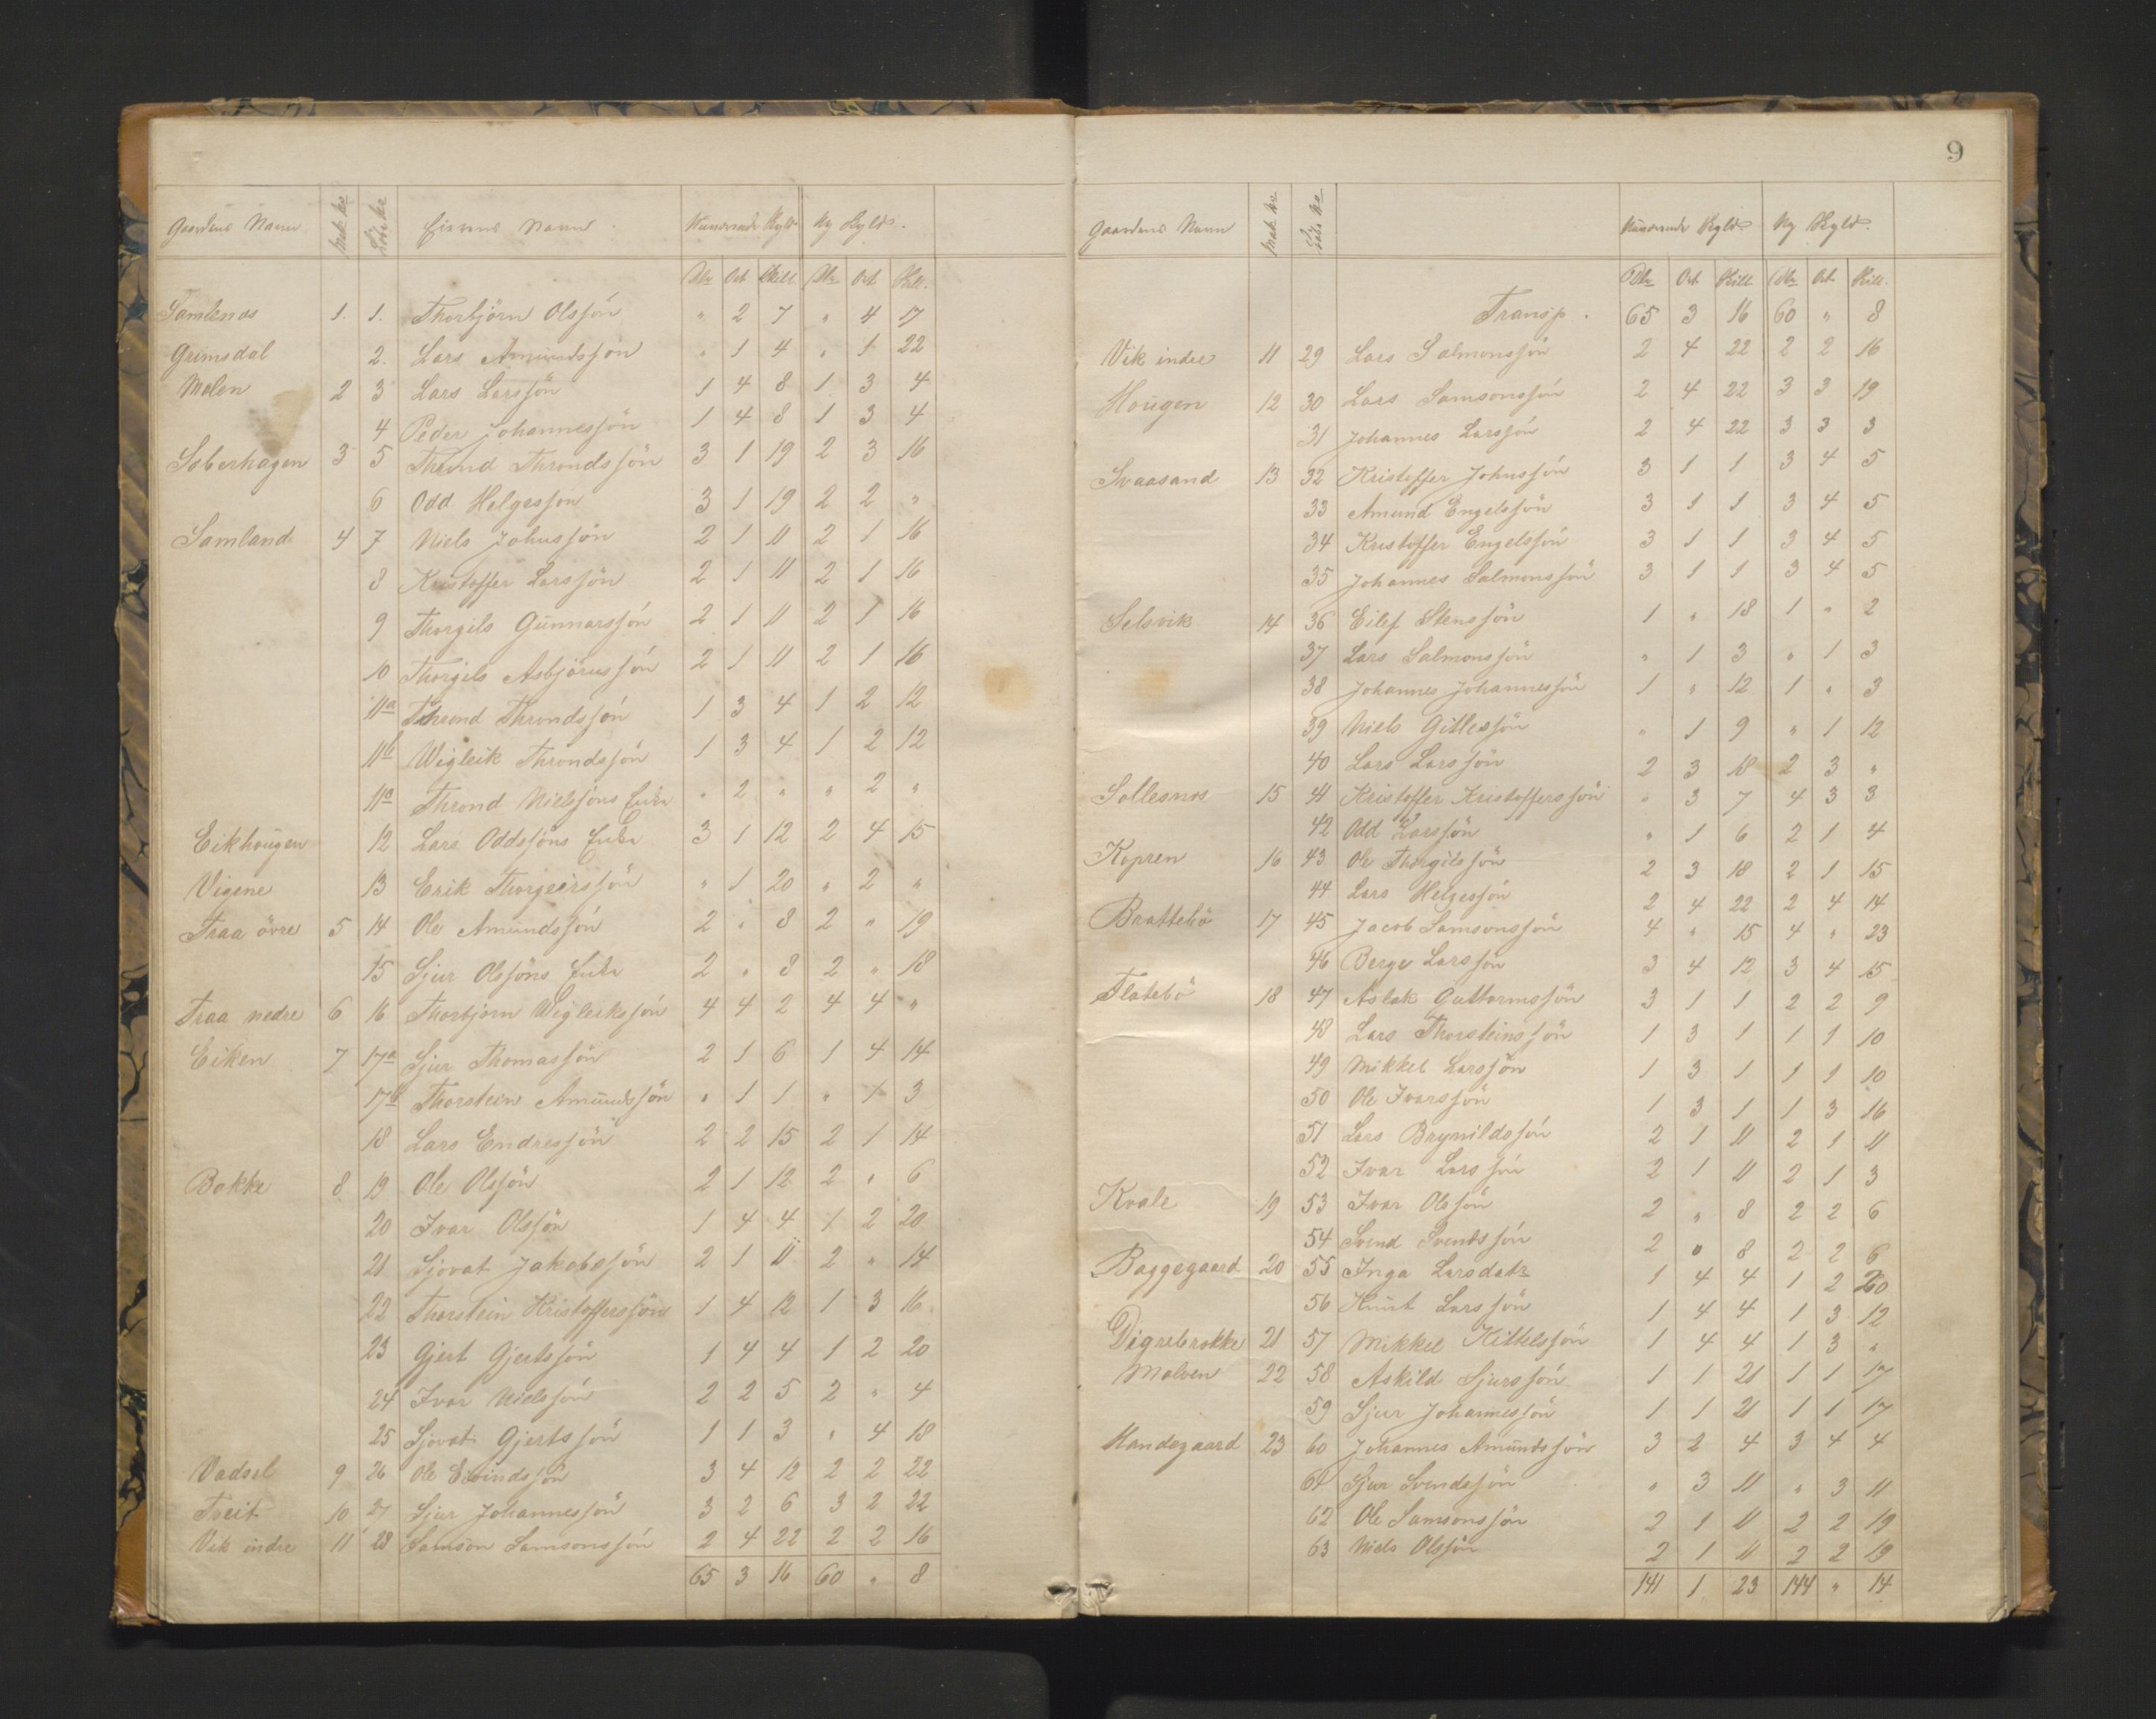 Gaardens Navn Mat. No Løbe No Eierens Navn Nuværende Skyld Ny Skyld.
Dlr Ort Skill Dlr Ort Skill.
Samlenes 1. 1. Thorbjörn Olssön " 2 7 " 4 17
Grimsdal 2. Lars Amundssön " 1 4 " 1 22
Molen 2 3 Lars Larssön 1 4 8 1 3 4
4 Peder Johannessön 1 4 8 1 3 4
Soberhagen 3 5 Thrond Throndssön 3 1 19 2 3 16
6 Odd Helgesson 3 1 19 2 2 "
Samland 4 7 Niels Johnssön 2 1 11 2 1 16
8 Kristoffer Larssön 2 1 11 2 1 16
9 Thorgils Gunnarssön 2 1 11 2 1 16
10 Thorgils Asbjörnssön 2 1 11 2 1 16
11a Thrond Throndssön 1 3 4 1 2 12
11b Wigleik Throndssön 1 3 4 1 2 12
11a Thrond Nielssöns Enke " 2 " " 2 "
Eikhougen 12 Lars Oddssöns Enke 3 1 12 2 4 15
Vigene 13 Erik Thorgeirssön " 1 20 " 2 "
Traa övre 5 14 Ole Amundssön 2 " 8 2 " 19
15 Sjur Olssöns Enke 2 " 8 2 " 18
Traa nedre 6 16 Thorbjörn Wigleikssön 4 4 2 4 4 "
Eiken 7 17a Sjur Thomassön 2 1 6 1 4 14
17b Thorstein Amundssön " 1 1 " 1 3
18 Lars Endressön 2 2 15 2 1 14
Bakke 8 19 Ole Olssön 2 1 12 2 " 6
20 Ivar Olssön 1 4 4 1 2 20
21 Sjovat Jakobssön 2 1 11 2 " 14
22 Thorstein Kristofferssön 1 4 12 1 3 16
23 Gjert Gjertssön 1 4 4 1 2 20
24 Ivar Nielssön 2 2 5 2 " 4
25 Sjovat Gjertssön 1 1 3 " 4 18
Vadsel 9 26 Ole Eivindssön 3 4 12 2 2 22
Tveit 10 27 Sjur Johannessön 3 2 6 3 2 22
Vik indre 11 28 Samson Samsonssön 2 4 22 2 2 16
65 3 16 60 " 8
9
Gaardens Navn Mat. No Løbe No Nuværende Skyld Ny Skyld.
Dlr Ort Skill. Dlr Ort Skill.
Transp. 65 3 16 60 " 8
Vik indre 11 29 Lars Salmonssön 2 4 22 2 2 16
Hougen 12 30 Lars Samsonssön 2 4 22 3 3 19
31 Johannes Larssön 2 4 22 3 3 3
Svaasand 13 32 Kristoffer Johnssön 3 1 1 3 4 5
33 Amund Engelssön 3 1 1 3 4 5
34 Kristoffer Engelssön 3 1 1 3 4 5
35 Johannes Salmonssön 3 1 1 3 4 5
Selsvik 14 36 Eilef Stenssön 1 " 18 1 " 2
37 Lars Salmonssön " 1 3 " 1 3
38 Johannes Johannessön 1 " 12 1 " 3
39 Niels Gillessön " 1 9 " 1 12
40 Lars Larssön 2 3 18 2 3 "
Sollesnes 15 41 Kristoffer Kristofferssön " 3 7 4 3 3
42 Odd Larssön " 1 6 2 1 4
Kopren 16 43 Ole Thorgilssön 2 3 18 2 1 15
44 Lars Helgessön 2 4 22 2 4 14
Brattebö 17 45 Jacob Samsonssön 4 " 15 4 " 23
46 Berge Larssön 3 4 12 3 4 15
Flatebö 18 47 Aslak Guttormssön 3 1 1 2 2 9
48 Lars Thorsteinssön 1 3 1 1 1 10
49 Mikkel Larssön 1 3 1 1 1 10
50 Ole Ivarssön 1 3 1 1 3 16
51 Lars Brynildssön 2 1 11 2 1 11
52 Ivar Larssön 2 1 11 2 1 3
Kvale 19 53 Ivar Olssön 2 " 8 2 2 6
54 Svend Svendssön 2 " 8 2 2 6
Baggegaard 20 55 Inga Larsdatr 1 4 4 1 2 20
56 Knut Larssön 1 4 4 1 3 12
Digrebrokke 21 57 Mikkel Kittelssön 1 4 4 1 3 "
Molven 22 58 Askild Sjurssön 1 1 21 1 1 17
59 Sjur Johannessön 1 1 21 1 1 17
Handegaard 23 60 Johannes Amundssön 3 2 4 3 4 4
61 Sjur Svendssön " 3 11 " 3 11
62 Ole Samsonssön 2 1 11 2 2 19
63 Niels Olssön 2 1 11 2 2 19
141 1 23 144 " 14